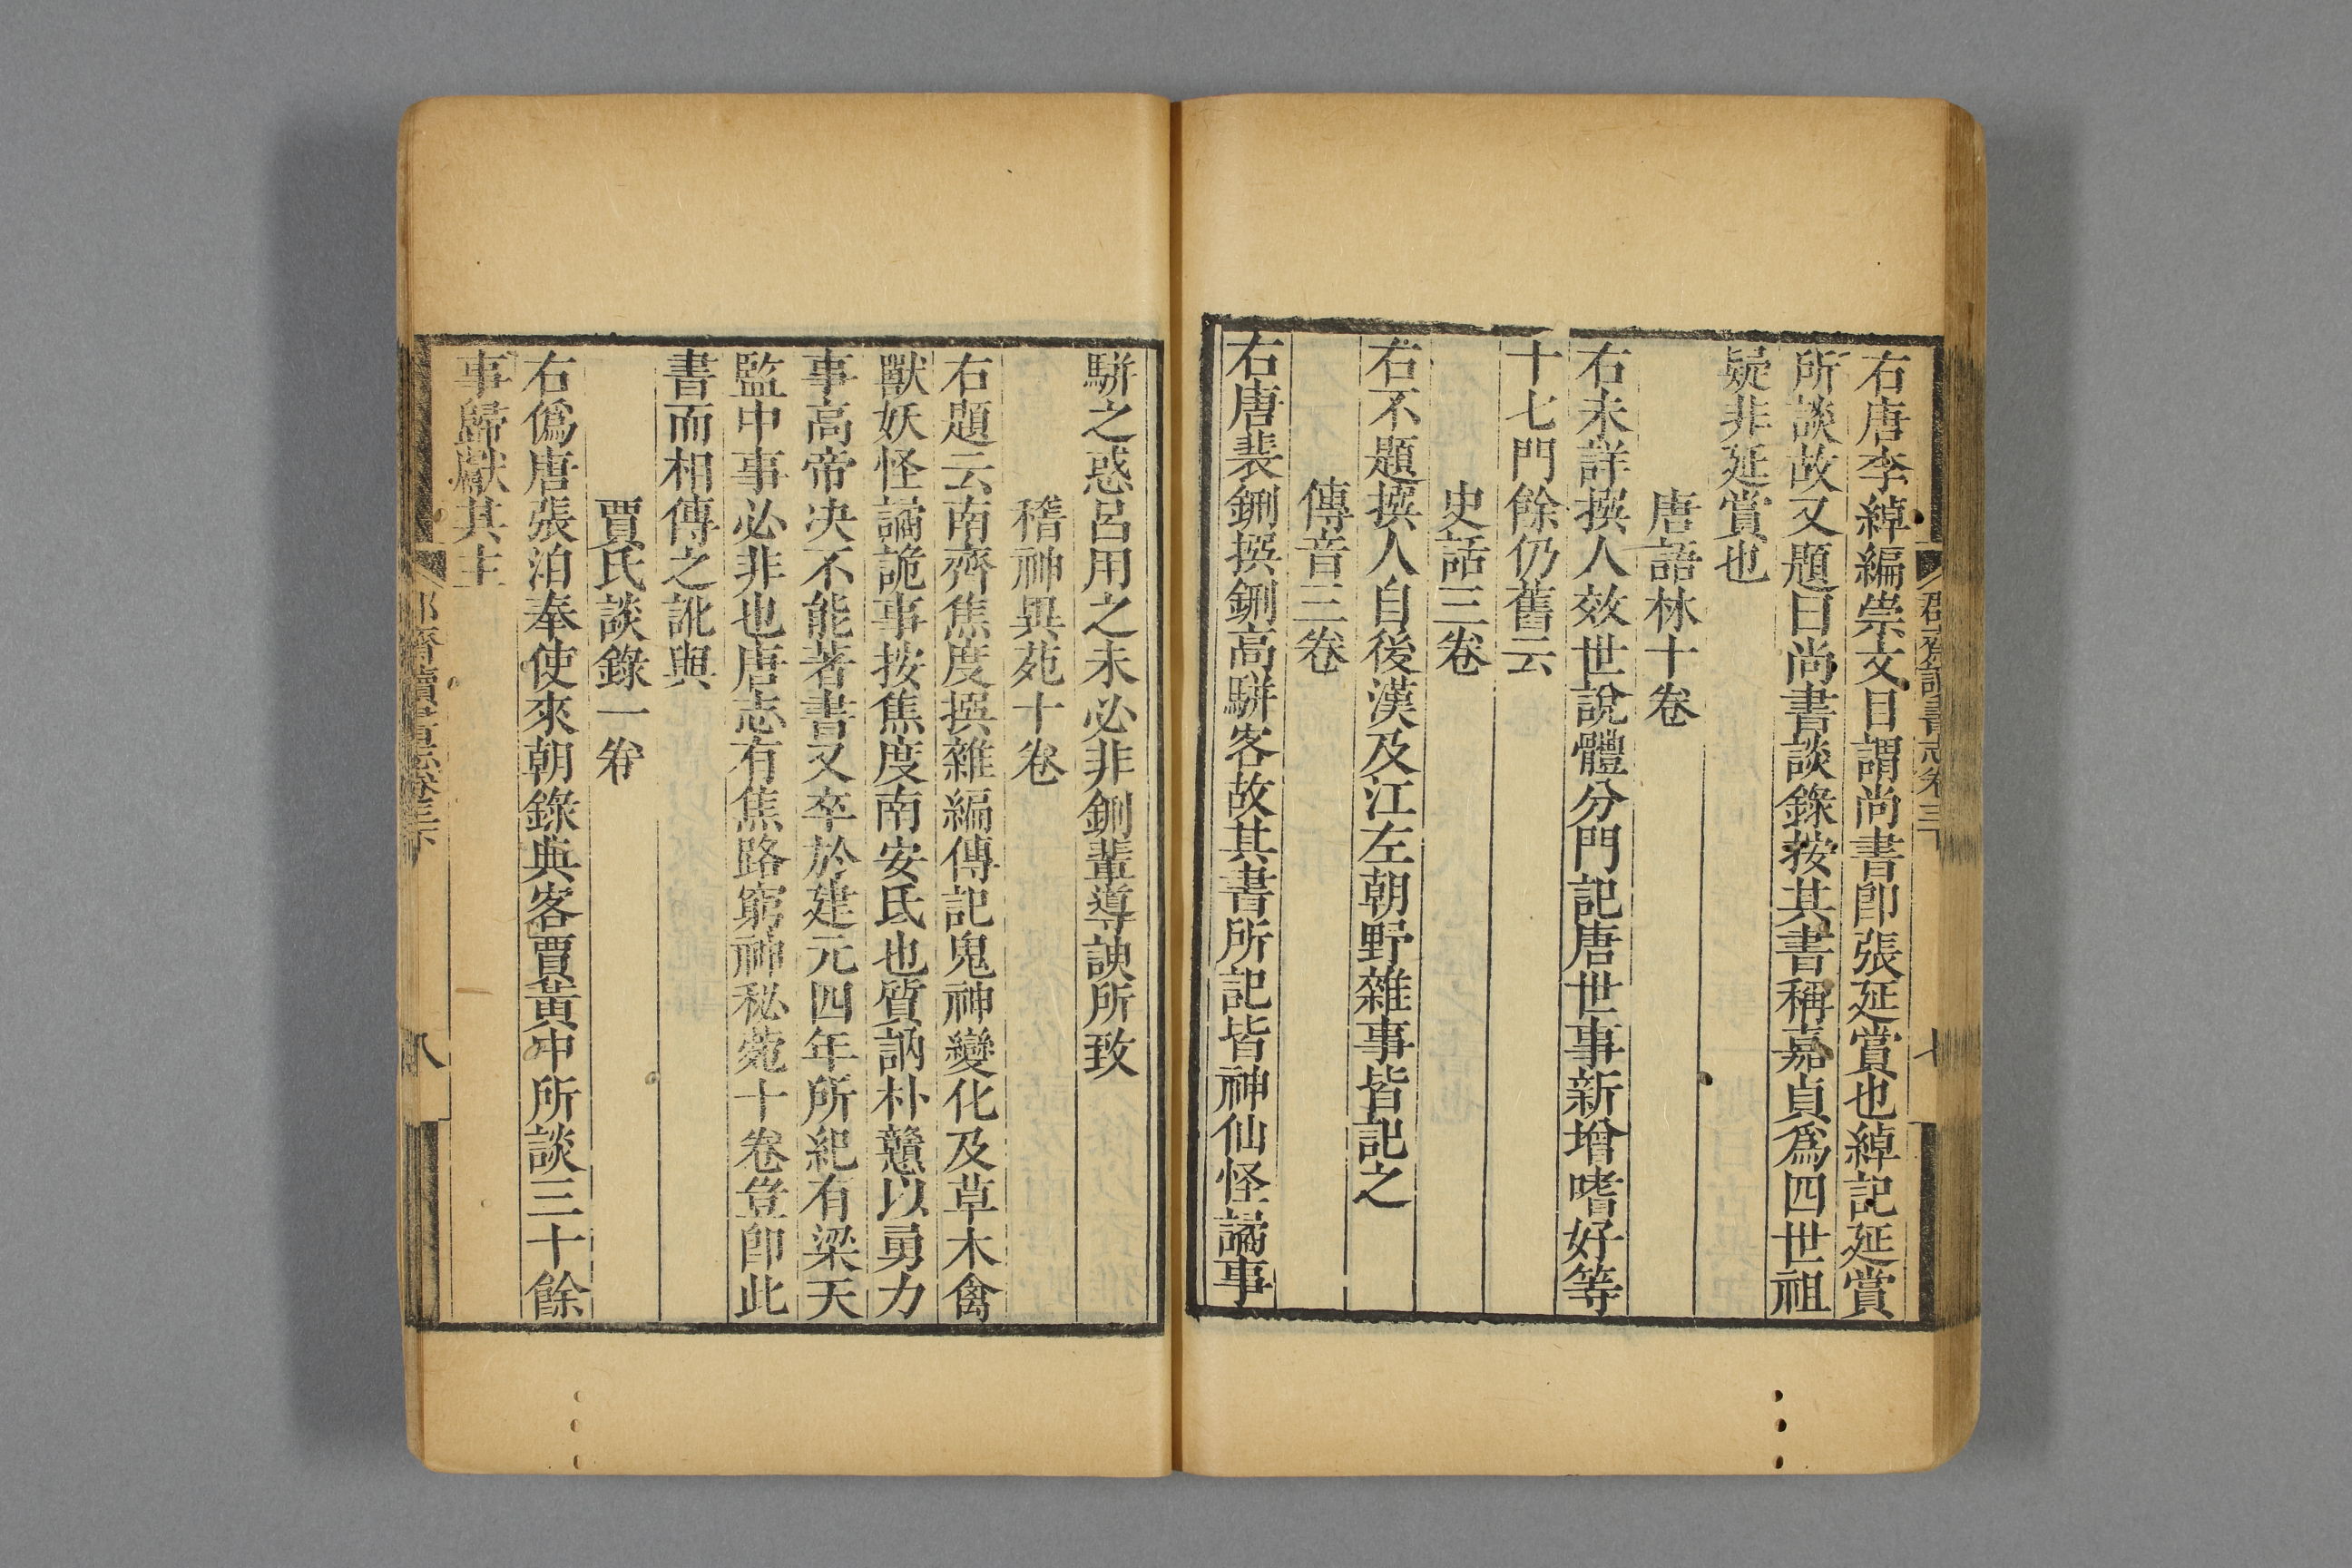 右唐李綽編崇文目謂尚書即張延賞也綽記延賞
所談故又題曰尚書談錄按其書稱嘉貞爲四世祖
疑非延賞也
唐語林十卷
右未詳撰人效世說體分門記唐世事新增嗜好等
十七門餘仍舊云
史話三卷
右不題撰人自後漢及江左朝野雜事皆記之
傳音三卷
右唐裴鉶撰鉶高駢客故其書所記皆神仙怪譎事
駢之惑呂用之未必非鉶輩導諛所致
稽神異苑十卷
右題云南齊焦度撰雜編傳記鬼神變化及草木禽
獸妖怪譎詭事按焦度南安氐也質訥朴戇以勇力
事高帝决不能著書又卒於建元四年所紀有梁天
監中事必非也唐志有焦路窮神秘菀十卷豈即此
書而相傳之訛與
賈氏談錄一卷
右僞唐張洎奉使來朝錄典客賈黃中所談三十餘
事歸獻其主
郡齋讀書志卷三下
七
郡齋讀書志卷三下
八